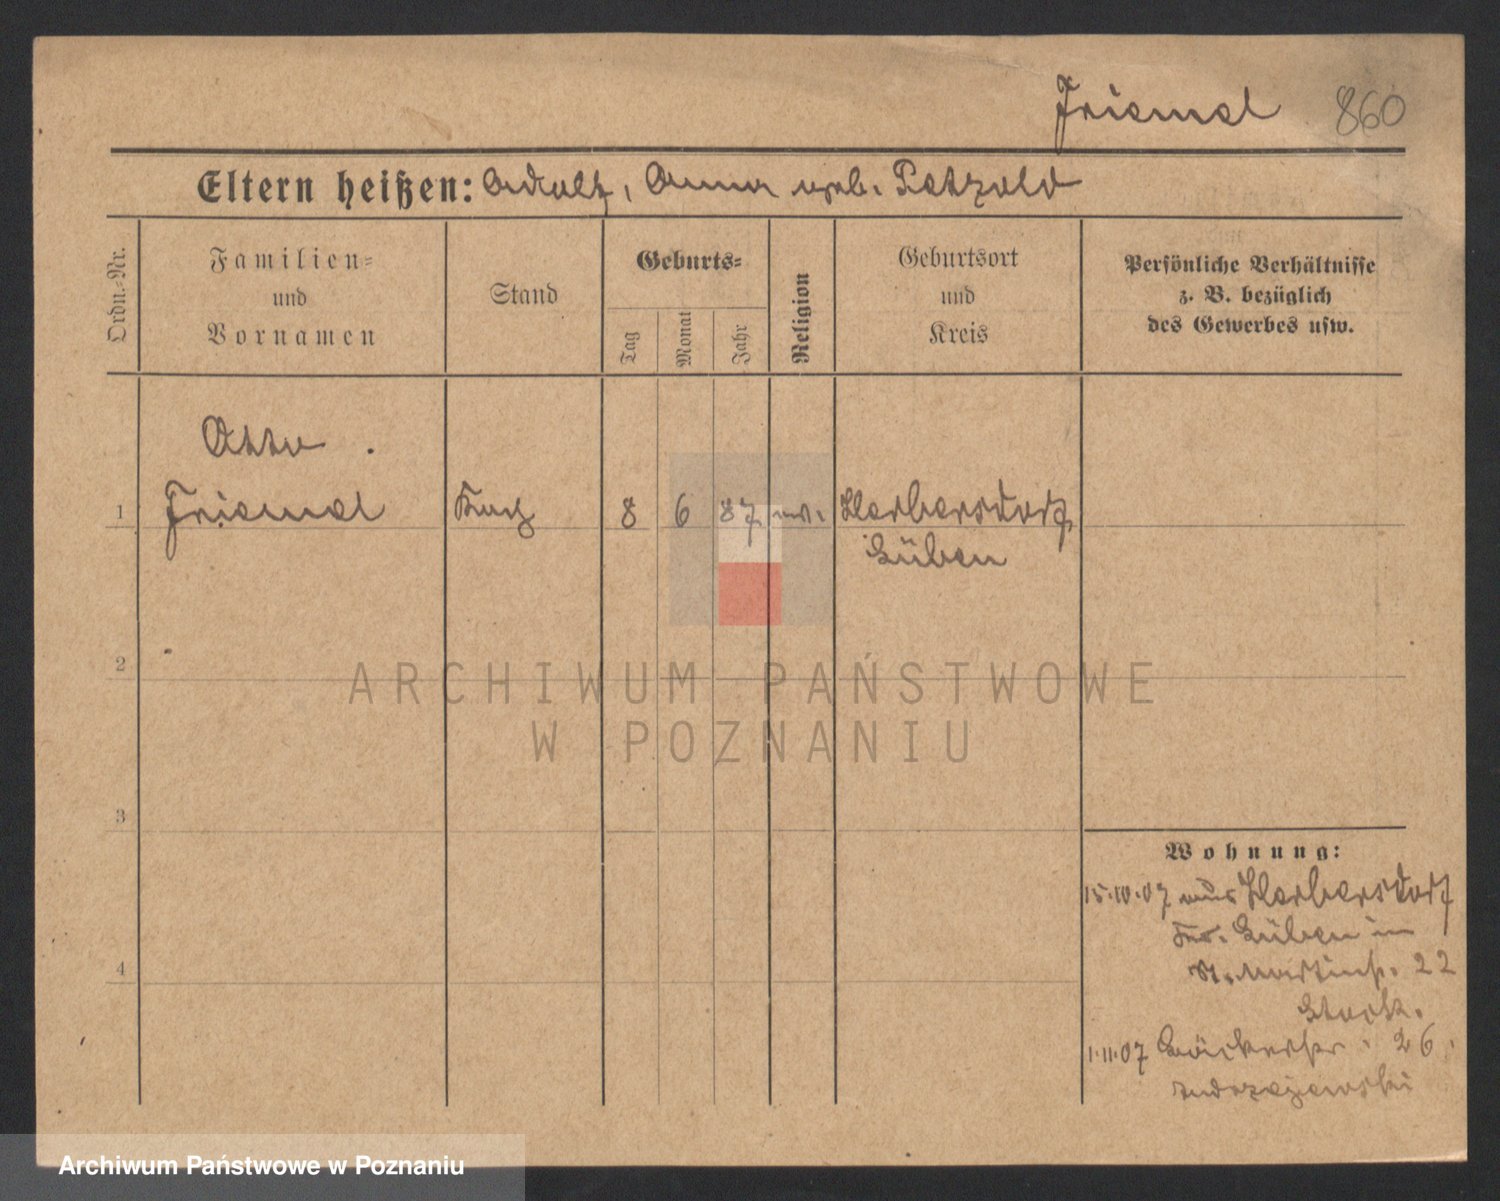 Friemel 860
Eltern heißen: Adolf, Anna geb. Petzold
Ordn.-Nr.
Familien-
und
Vornamen
Stand
Geburts-
Tag
Monat
Jahr
Religion
Geburtsort
und
Kreis
Persönliche Verhältnisse
z. B. bezüglich
des Gewerbes usw.
Otto
1 Friemel 8 6 87 ev. Herbersdorf
Lüben
2
3
4
Wohnung:
15.10.07 aus Herbersdorf
Krs. Lüben in
St. Martinstr. 22
1.11.07 Bäckerstr. 26
Andrzejewski
ARCHIWUM PAŃSTWOWE
W POZNANIU
Archiwum Państwowe w Poznaniu